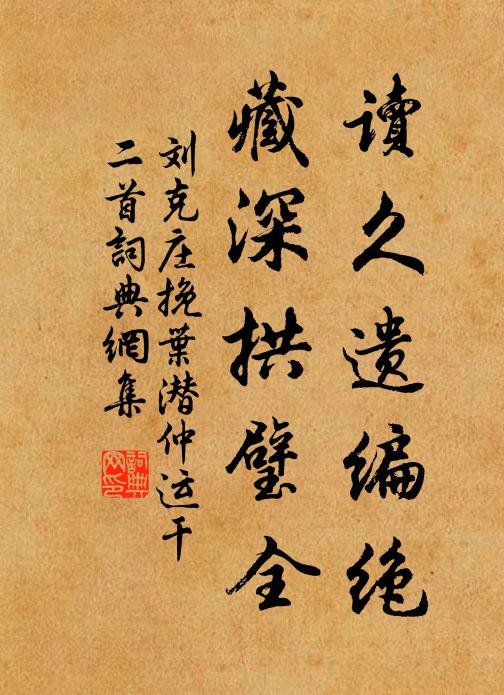 讀久遗編絶
藏深拱璧全
刘克庄挽葉潜仲运干
二首詞典網集
詞典網印